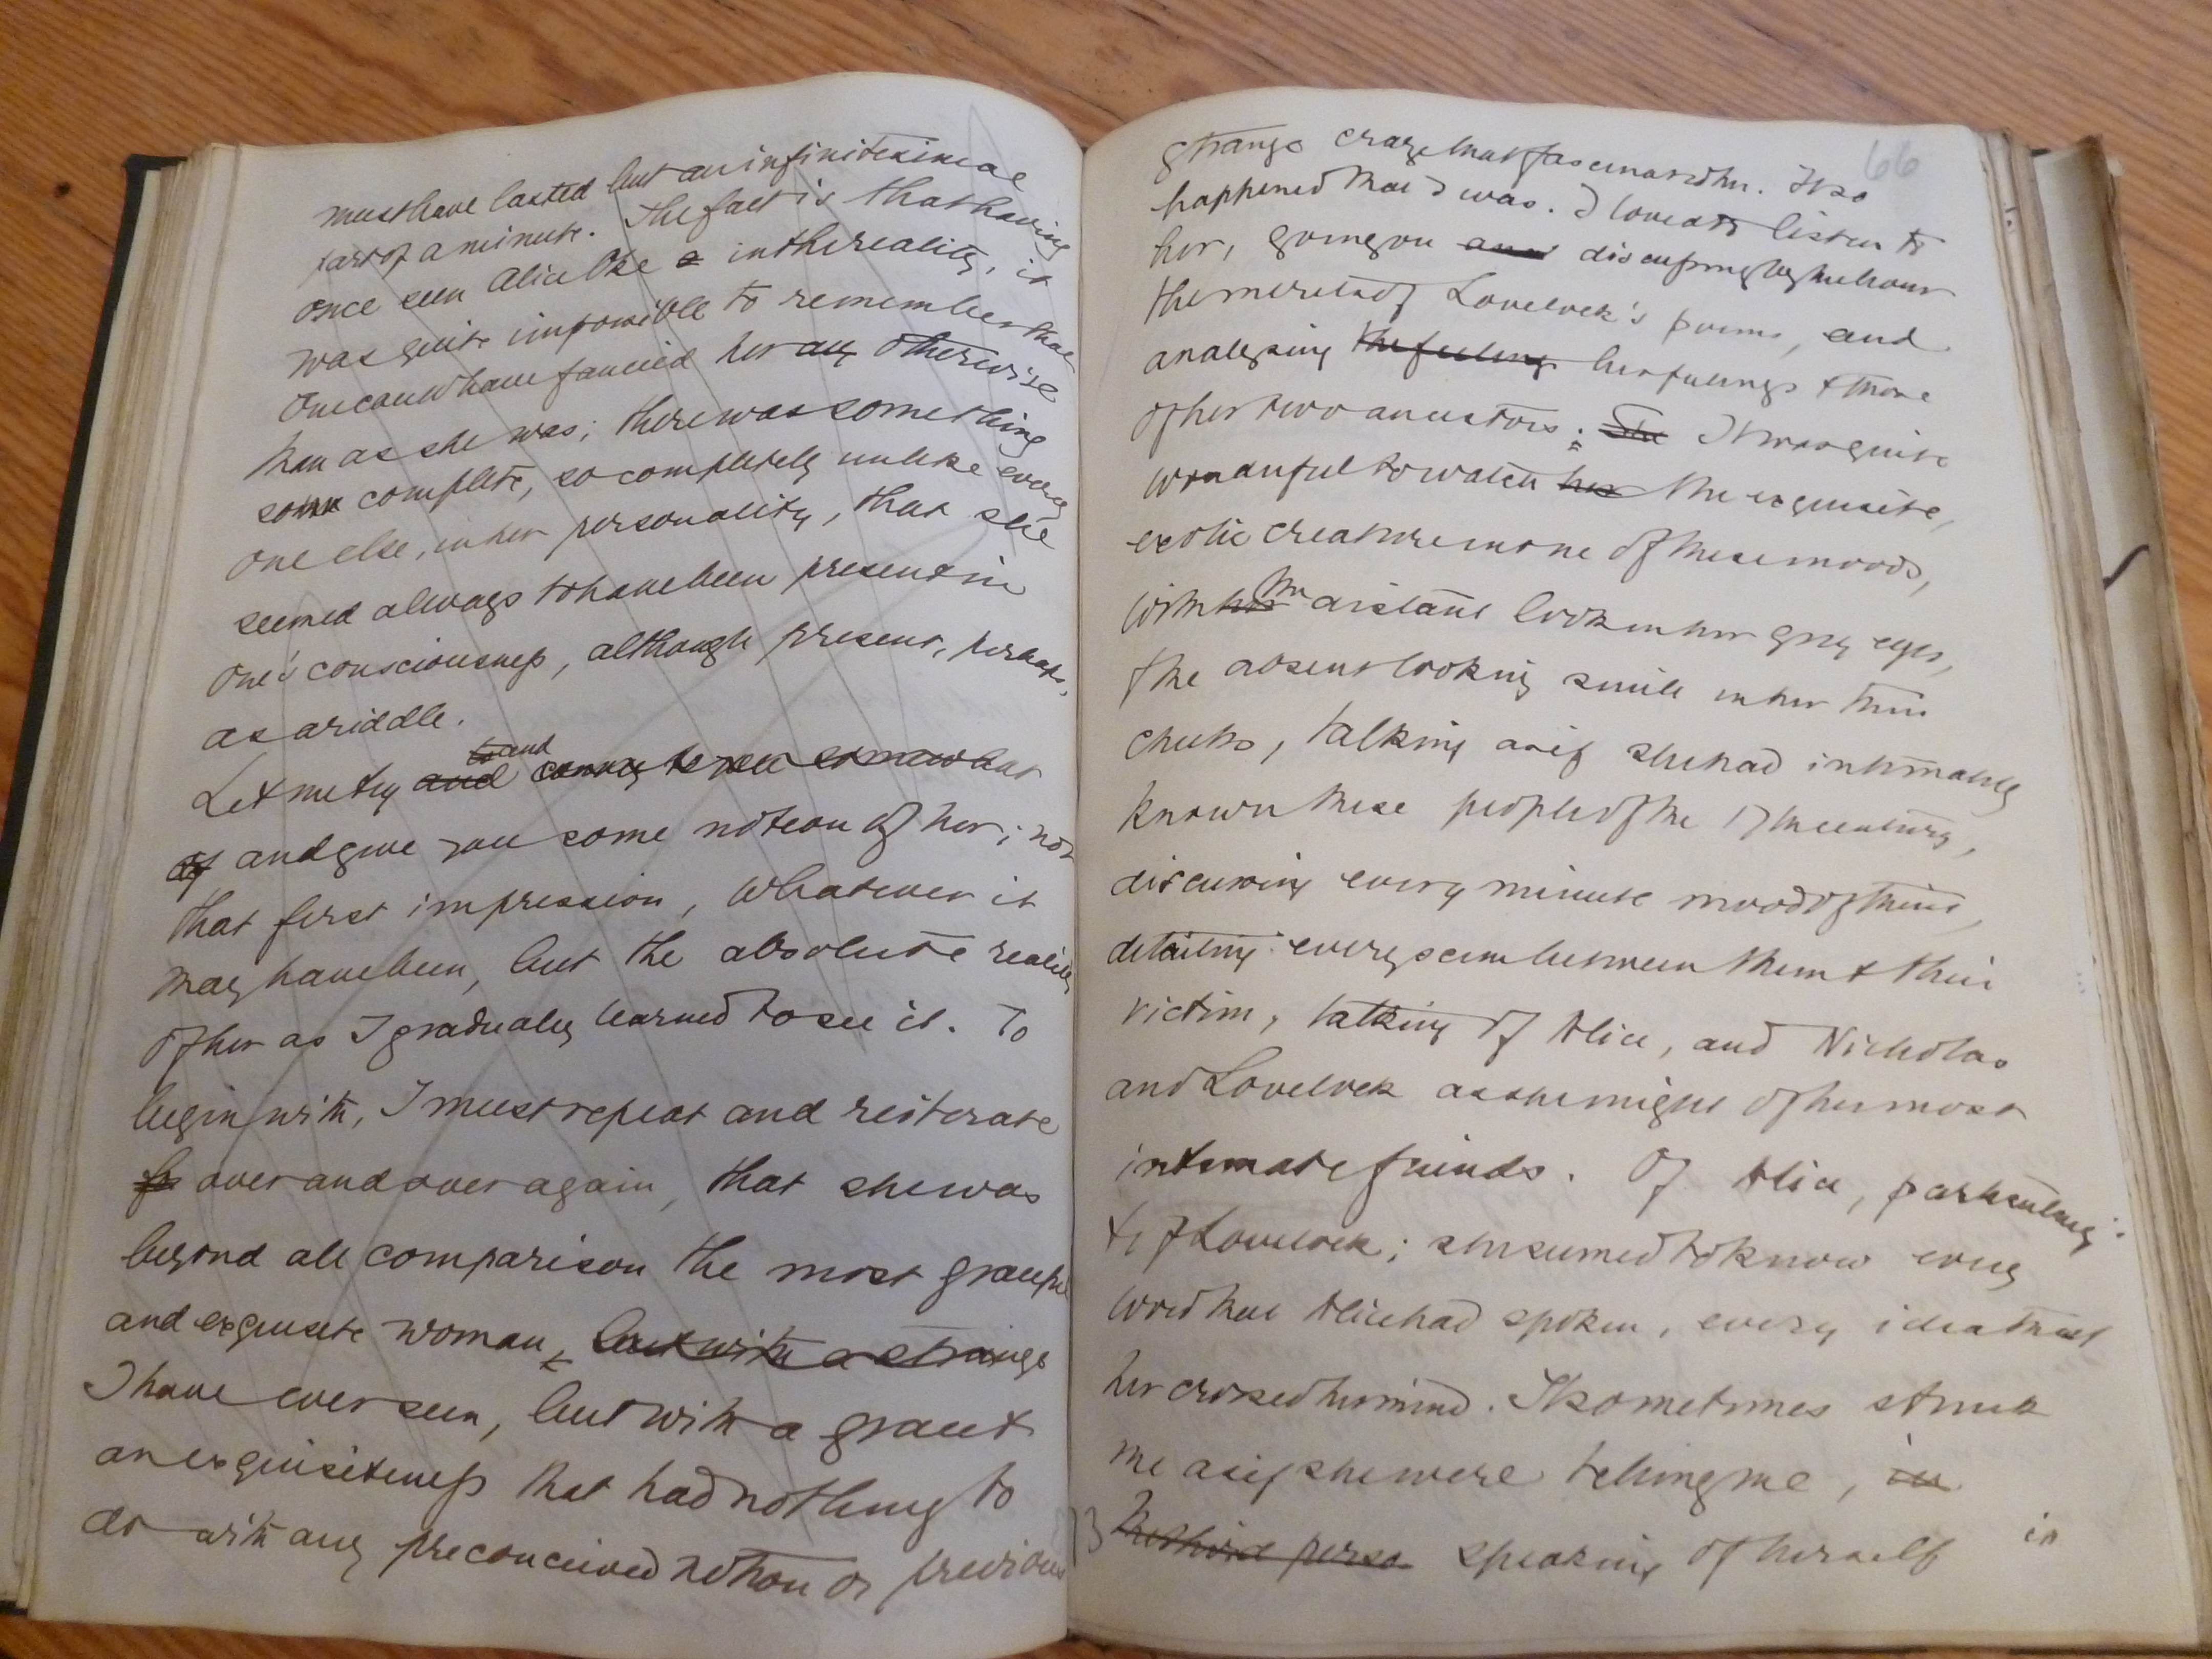 must have lasted but an infinitesimal
part of a minute. The fact is that having
once seen Alice Oke in the reality, it
was quite impossible to remember that
one could have fancied her any otherwise
than as she was; there was something
so complete, so completely unlike every
one else, in her personality, that she
seemed always to have been present in
one's consciousness, although present, perhaps,
as a riddle.
Let me try and convey to you somewhat
of and give you some notion of her; not
that first impression, whatever it
may have been, but the absolute reality
of her as I gradually learned to see it. To
begin with, I must repeat and reiterate
over and over again, that she was
beyond all comparison the most graceful
and exquisite woman, but with a strange
I have ever seen, but with a grace &
an exquisiteness that had nothing to
do with any preconceived notion or previous
66
strange craze that fascinated her. It so
happened that I was. I loved to listen to
her, going on and discussing by the hour
the merits of Lovelock's poems, and
analysing the feelings her feelings & those
of her two ancestors. She It was quite
wonderful to watch her the exquisite,
exotic creature in one of these moods,
with her the distant look in her grey eyes,
& the absent looking smile in her thin
cheeks, talking as if she had intimately
known these people of the 17th century,
discussing every minute mood of theirs,
detailing every scene between them & their
victim, talking of Alice, and Nicholas
and Lovelock as she might of her most
intimate friends. Of Alice, particularly,
& of Lovelock; she seemed to know every
word that Alice had spoken, every idea that
her crossed her mind. It sometimes struck
me as if she were telling me, in
the third perso speaking of herself in